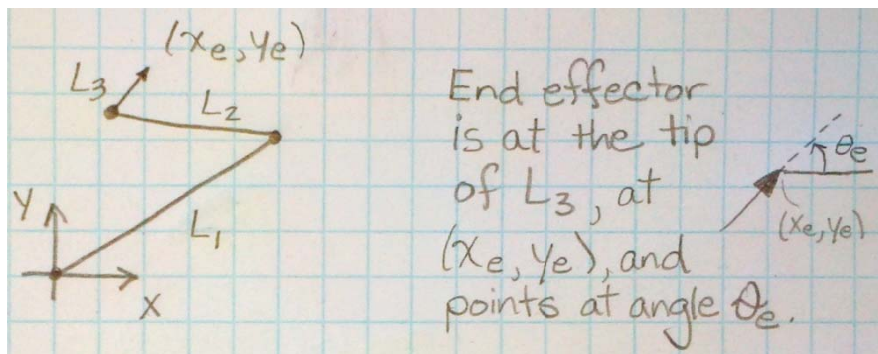 (xₑ, yₑ)
L₃
L₂
L₁
Y
X
End effector
is at the tip
of L₃, at
(xₑ, yₑ), and
points at angle θₑ.
θₑ
(xₑ, yₑ)